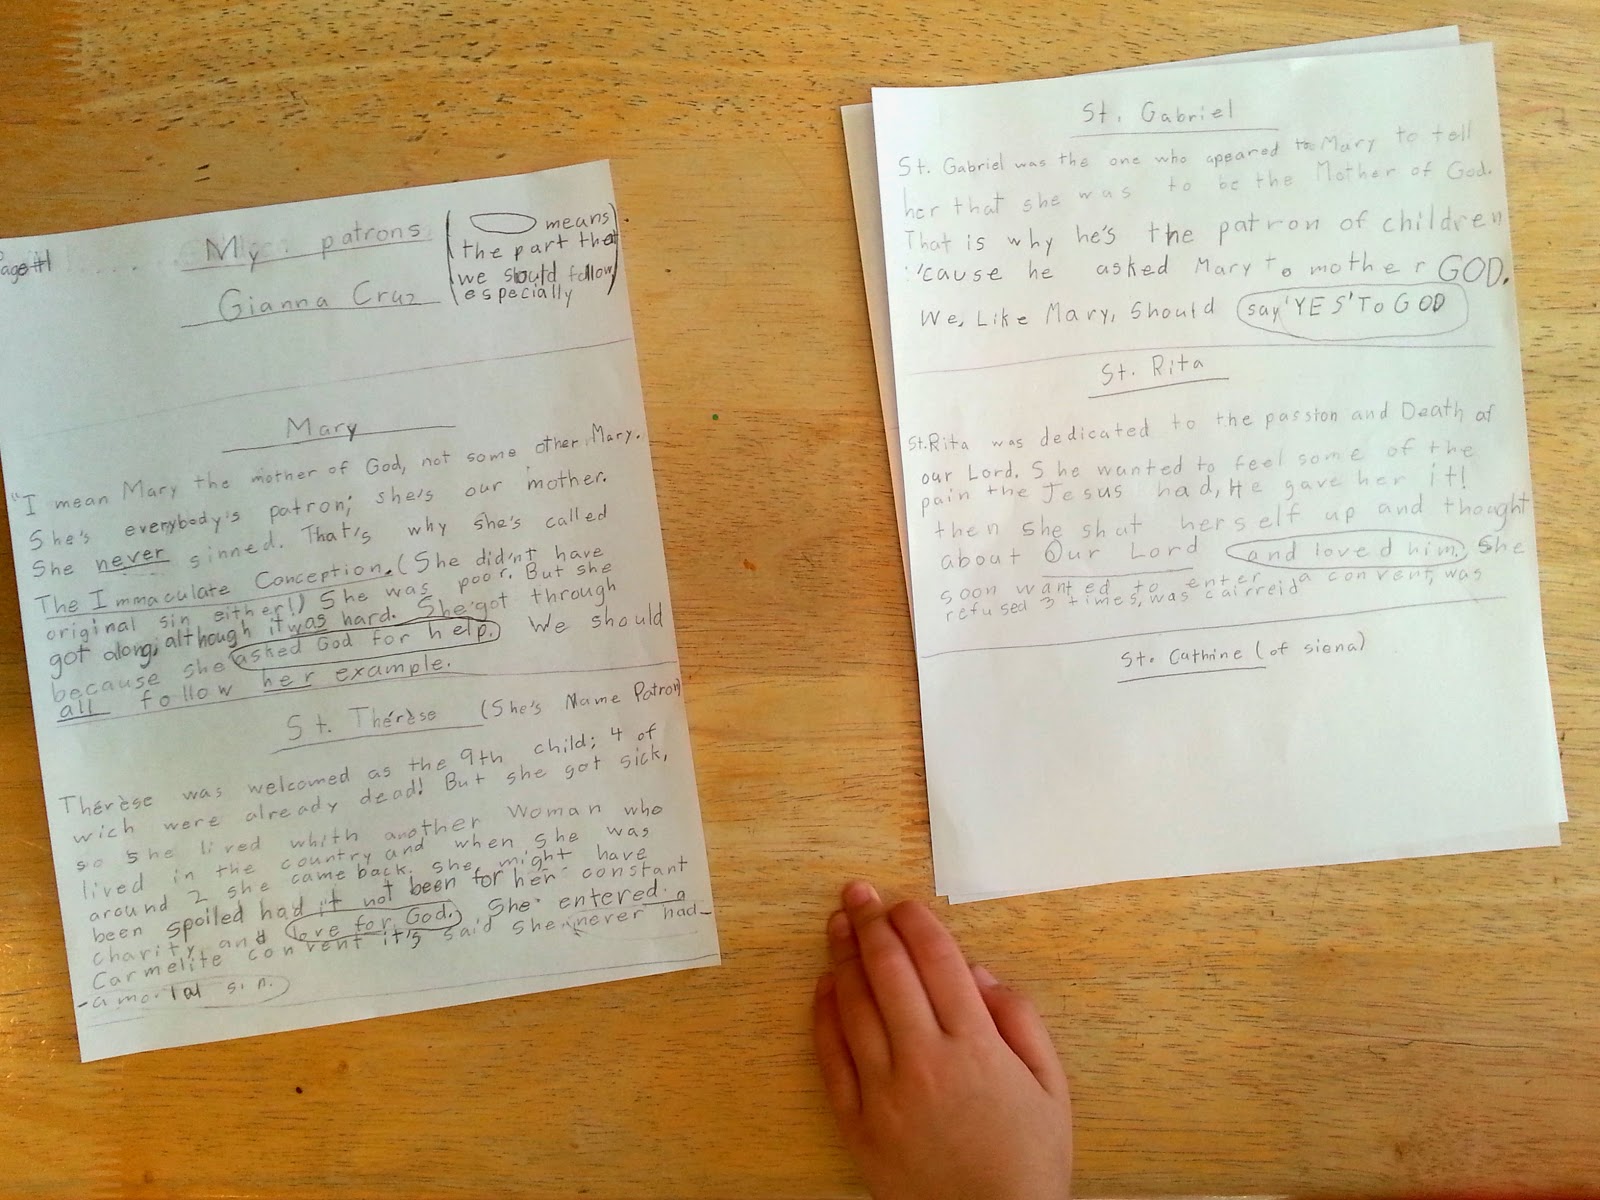 Page #1
My patrons
Gianna Cruz
( means
the part that
we should follow
especially ).
Mary
"I mean Mary the mother of God, not some other Mary.
She's everybody's patron; she's our mother.
She never sinned. That's why she's called
The Immaculate Conception. (She didn't have
original sin either!) She was poor. But she
got along, although it was hard. She got through
because she asked God for help. We should
all follow her example.
St. Thérèse (She's Name Patron)
Thérèse was welcomed as the 9th child; 4 of
wich were already dead! But she got sick,
so she lived whith another woman who
lived in the country and when she was
around 2 she came back. she might have
been spoiled had it not been for her constant
charity and love for God. She entered a
Carmelite convent it's said she never had
-a mortal sin.
St. Gabriel
St. Gabriel was the one who apeared to Mary to tell
her that she was to be the Mother of God.
That is why he's the patron of children
'cause he asked Mary to mother GOD.
We, Like Mary, Should say 'YES' TO GOD
St. Rita
St.Rita was dedicated to the passion and Death of
our Lord. She wanted to feel some of the
pain the Jesus had, He gave her it!
then she shut herself up and thought
about Our Lord and loved him. She
soon wanted to enter a convent, was
refused 3 times, was cairreid
St. Cathrine (of siena)